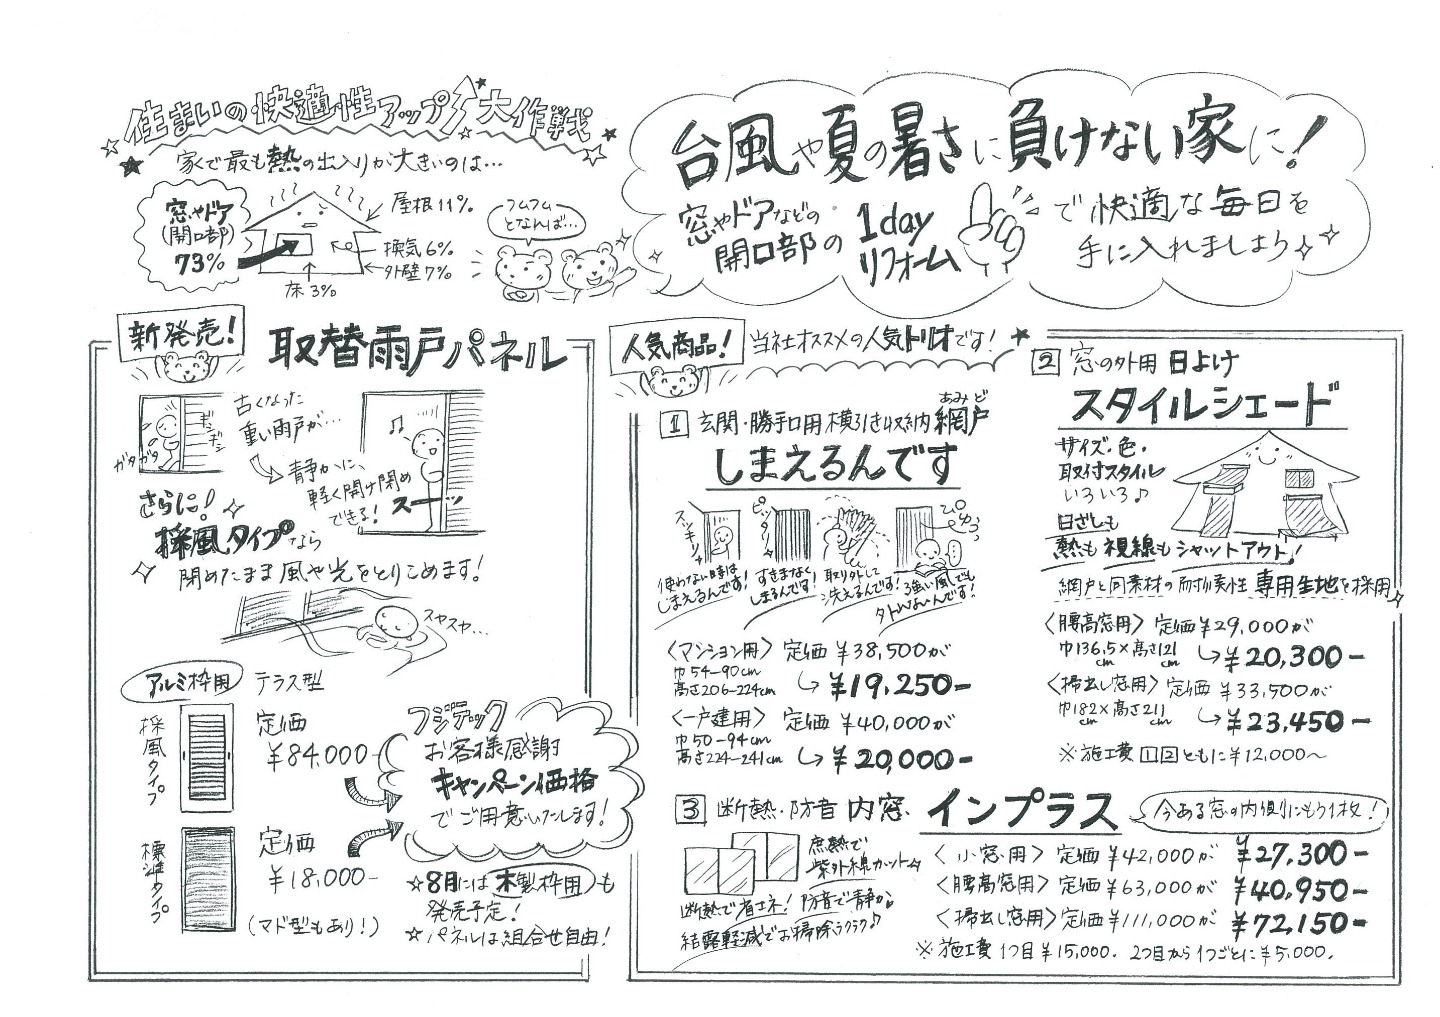 住まいの快適性アップ大作戦
家で最も熱の出入りが大きいのは…
窓やドア
(開口部)
73%
屋根11%
換気6%
外壁7%
床3%
フムフム
となんば…
台風や夏の暑さに負けない家に!
窓やドアなどの
開口部の
1day
リフォーム
で快適な毎日を
手に入れましょう
新発売!
取替雨戸パネル
古くなった
重い雨戸が…
ギシギシ
ガタガタ
静かに、
軽く開け閉め
できる!
スーッ
さらに!
採風タイプなら
閉めたまま風や光をとりこめます!
スヤスヤ…
アルミ枠用 テラス型
採風タイプ
定価
¥84,000-
標準タイプ
定価
¥18,000-
(マド型もあり!)
フジテック
お客様感謝
キャンペーン価格
でご用意いたします!
☆8月には木製枠用も
発売予定!
☆パネルは組合せ自由!
人気商品!
当社オススメの人気トリオです!★
1 玄関・勝手口用横引き収納網戸
あみど
しまえるんです
スッキリ
使わない時は
しまえるんです!
ピッタリ
すきまなく
しまるんです!
取り外して
洗えるんです!
強い風でも
タトWよいんです!
<マンション用> 定価¥38,500が
巾54-90cm
高さ206-224cm
¥19,250-
<一戸建用> 定価¥40,000が
巾50-94cm
高さ224-241cm
¥20,000-
2 窓の外用 日よけ
スタイルシェード
サイズ・色・
取付スタイル
いろいろ♪
日ざしも
熱も視線もシャットアウト!
網戸と同素材の耐候性専用生地を採用
<腰高窓用> 定価¥29,000が
巾136.5cm×高さ121cm
¥20,300-
<掃出し窓用> 定価¥33,500が
巾182cm×高さ211cm
¥23,450-
※施工費 1 2 ともに¥12,000~
3 断熱・防音 内窓 インプラス
今ある窓の内側にもう1枚!
遮熱で
紫外線カット
断熱で省エネ! 防音で静か♪
結露軽減でお掃除ラクラク♪
<小窓用> 定価¥42,000が ¥27,300-
<腰高窓用> 定価¥63,000が ¥40,950-
<掃出し窓用> 定価¥111,000が ¥72,150-
※施工費 1つ目¥15,000. 2つ目から1つごとに¥5,000.